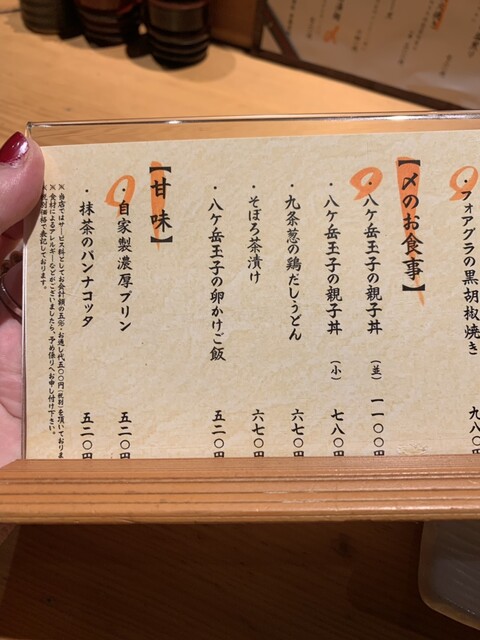 ・フォアグラの黒胡椒焼き 九八〇
【〆のお食事】
・八ケ岳玉子の親子丼 (並) 一一〇〇円
・八ケ岳玉子の親子丼 (小) 七八〇円
・九条葱の鶏だしうどん 六七〇円
・そぼろ茶漬け 六七〇円
・八ケ岳玉子の卵かけご飯 五二〇円
【甘味】
・自家製濃厚プリン 五二〇円
・抹茶のパンナコッタ 五二〇円
※当店ではサービス料としてお会計額の五%・お通し代五〇〇円(税別)を頂いておりま
※食材によるアレルギーなどがございましたら、予め係りへお申し付け下さい。
※税別価格で表記しております。